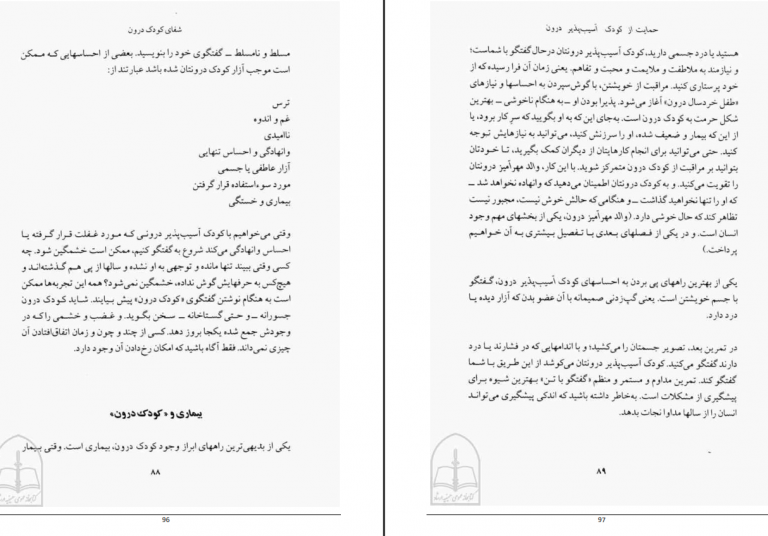 شفای کودک درون
مسلط و نامسلط ــ گفتگوی خود را بنویسید. بعضی از احساسهایی که ممکن
است موجب آزار کودک درونتان شده باشد عبارتند از:
ترس
غم و اندوه
ناامیدی
وانهادگی و احساس تنهایی
آزار عاطفی یا جسمی
مورد سوءاستفاده قرار گرفتن
بیماری و خستگی
وقتی می‌خواهیم با کودک آسیب‌پذیر درونی که مورد غفلت قرار گرفته یا
احساس وانهادگی می‌کند شروع به گفتگو کنیم، ممکن است خشمگین شود. چه
کسی وقتی ببیند تنها مانده و توجهی به او نشده و سالها از پی هم گذشته‌اند و
هیچ‌کس به حرفهایش گوش نداده، خشمگین نمی‌شود؟ همه این تجربه‌ها ممکن
است به هنگام نوشتن گفتگوی «کودک درون» پیش بیایند. شاید کودک درون
جسورانه ــ و حتی گستاخانه ــ سخن بگوید. و غضب و خشمی را که در
وجودش جمع شده یکجا بروز دهد. کسی از چند و چون و زمان اتفاق‌افتادن آن
چیزی نمی‌داند. فقط آگاه باشید که امکان رخ‌دادن آن وجود دارد.
بیماری و «کودک درون»
یکی از بدیهی‌ترین راههای ابراز وجود کودک درون، بیماری است. وقتی بیمار
۸۸
96
حمایت از کودک آسیب‌پذیر درون
هستید یا درد جسمی دارید، کودک آسیب‌پذیر درونتان درحال گفتگو با شماست؛
و نیازمند به ملاطفت و ملایمت و محبت و تفاهم. یعنی زمان آن فرا رسیده که از
خود پرستاری کنید. مراقبت از خویشتن، با گوش‌سپردن به احساسها و نیازهای
«طفل خردسال درون» آغاز می‌شود. پذیرا بودن او ــ به هنگام ناخوشی ــ بهترین
شکل حرمت به کودک درون است. به‌جای این‌که به او بگویید که سرِ کار برود، یا
از این که بیمار و ضعیف شده، او را سرزنش کنید، می‌توانید به نیازهایش توجه
کنید. حتی می‌توانید برای انجام کارهایتان از دیگران کمک بگیرید، تا خودتان
بتوانید بر مراقبت از کودک درون متمرکز شوید. با این کار، والد مهرآمیز درونتان
را تقویت می‌کنید. و به کودک درونتان اطمینان می‌دهید که وانهاده نخواهد شد ــ
که او را تنها نخواهید گذاشت ــ و هنگامی که حالش خوش نیست، مجبور نیست
تظاهر کند که حال خوشی دارد. (والد مهرآمیز درون، یکی از بخشهای مهم وجود
انسان است. و در یکی از فصلهای بعدی با تفصیل بیشتری به آن خواهیم
پرداخت.)
یکی از بهترین راههای پی بردن به احساسهای کودک آسیب‌پذیر درون، گفتگو
با جسم خویشتن است. یعنی گپ‌زدنی صمیمانه با آن عضو بدن که آزار دیده یا
درد دارد.
در تمرین بعد، تصویر جسمتان را می‌کشید؛ و با اندامهایی که در فشارند یا درد
دارند گفتگو می‌کنید. کودک آسیب‌پذیر درونتان می‌کوشد از این طریق با شما
گفتگو کند. تمرین مداوم و مستمر و منظم «گفتگو با تن» بهترین شیوه برای
پیشگیری از مشکلات است. به‌خاطر داشته باشید که اندکی پیشگیری می‌تواند
انسان را از سالها مداوا نجات بدهد.
۸۹
97